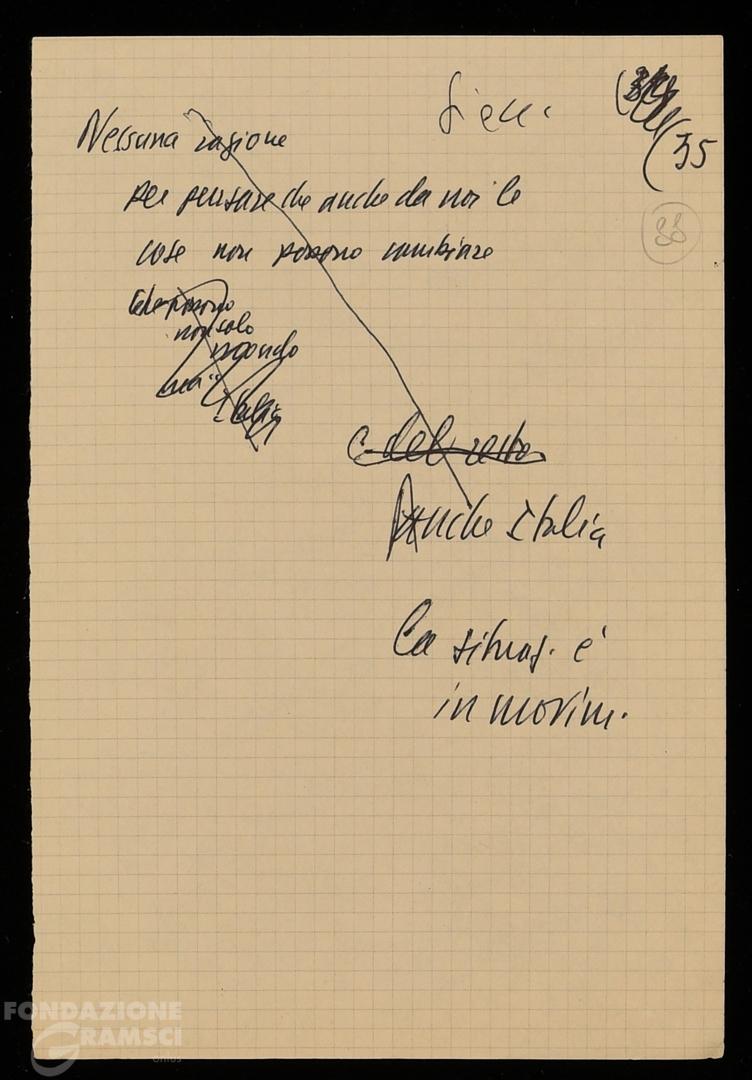 Nessuna ragione
(35
33
per pensare che anche da noi le
cose non possono cambiare
che possono
non solo
secondo
ma
Italia
e del resto
Anche Italia
La situaz. è
in movim.
FONDAZIONE
GRAMSCI
onlus